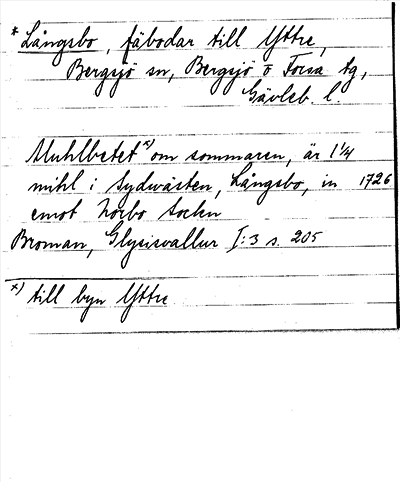 * Långsbo, fäbodar till Yttre,
Bergsjö sn, Bergsjö o Forsa tg,
Gävleb. l.
Muhlbetet x) om sommaren, är 1 1/4
mihl i sydwästen, Långsbo, in 1726
emot Norbo Socken
Broman, Glysisvallur I:3 s. 205
x) till byn Yttre